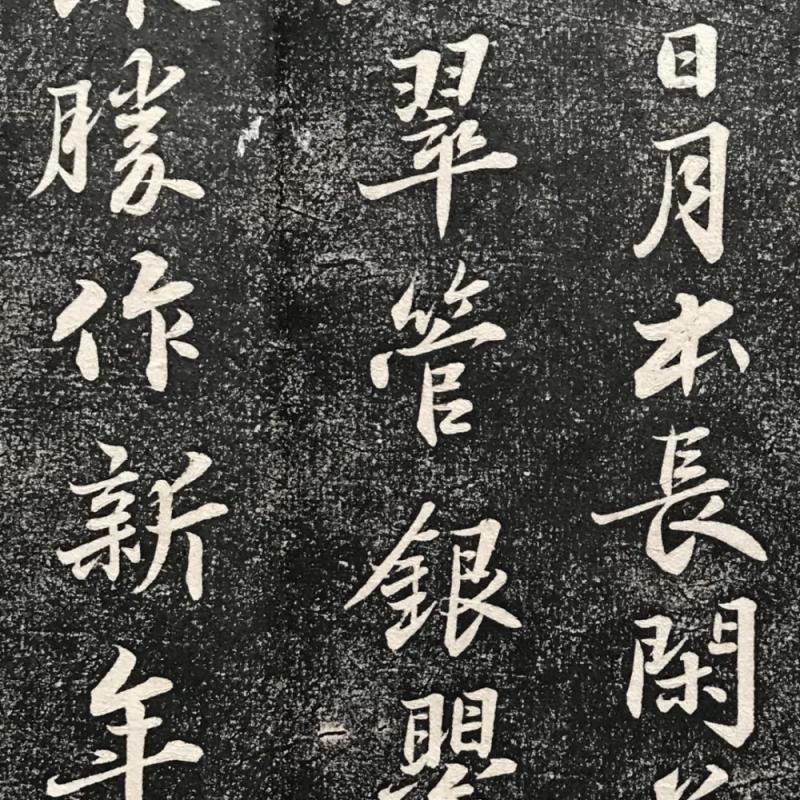 日月本長閑
翠管銀罌
勝作新年